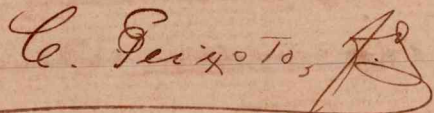 C. Peixoto, F.